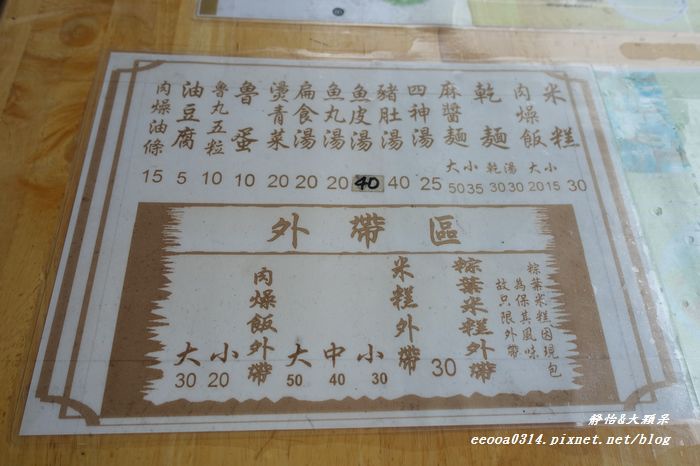 米糕 30
肉燥飯 大20 小15
乾麵 乾30 湯30
麻醬麵 大50 小35
四神湯 25
豬肚湯 40
魚皮湯 40
魚丸湯 20
扁食湯 20
燙青菜 20
魯蛋 10
魯丸五粒 10
油豆腐 5
肉燥油條 15
外帶區
粽葉米糕因現包
為保其風味
故只限外帶
粽葉米糕外帶 30
米糕外帶
大50 中40 小30
肉燥飯外帶
大30 小20
靜怡&大顆呆
eeooa0314.pixnet.net/blog